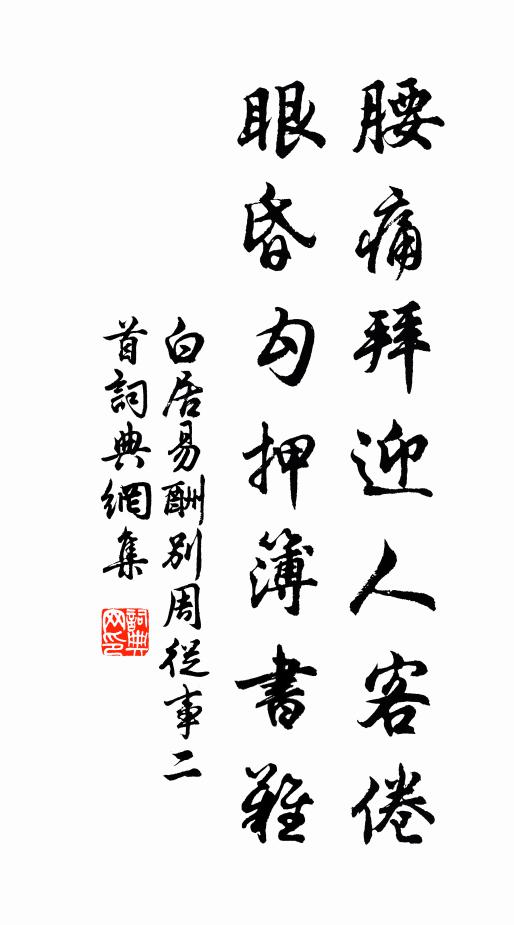 腰痛拜迎人客倦
眼昏勾押簿書難
白居易酬別周從事二
首詞典網集
詞典網印